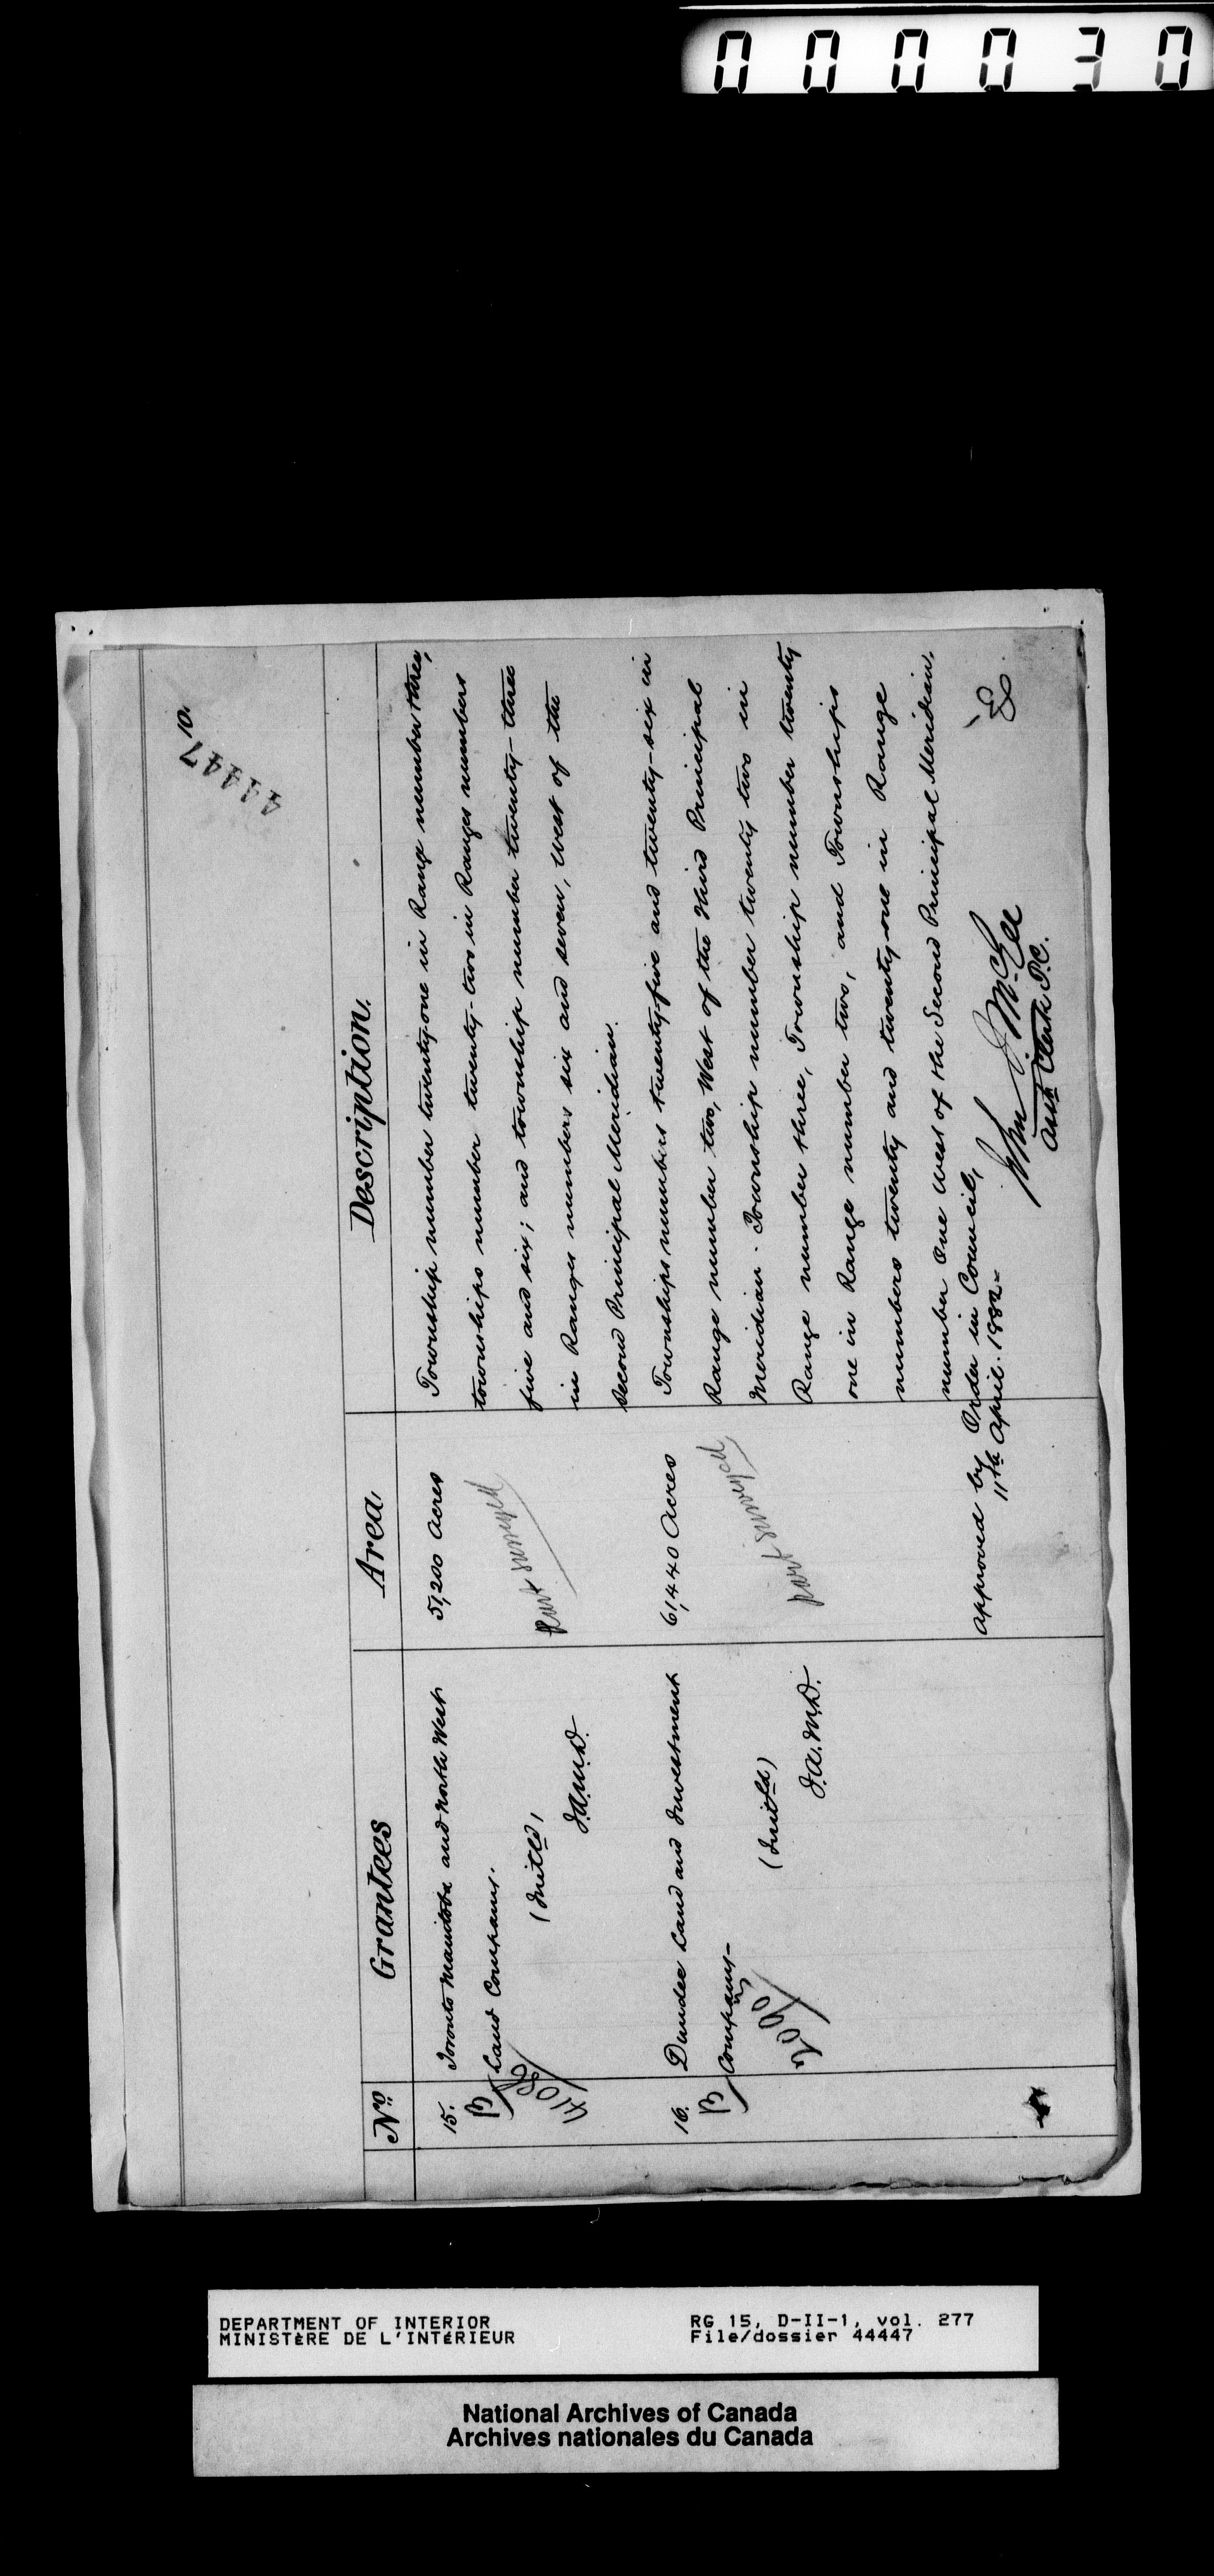 000030
44447
10.
No. Grantees Area. Description.
15. Toronto Manitoba and North West
Land Company.
B
(Initld,
J.A.M.D.
51,200 Acres
part surveyed
Township number twenty-one in Range number three,
townships number twenty-two in Ranges numbers
five and six; and township number twenty-three
in Ranges numbers six and seven, West of the
Second Principal Meridian.
16. Dundee Land and Investment
Company-
B
2090
(Initld)
J.A.M.D.
61,440 Acres
part surveyed
Townships numbers twenty-five and twenty-six in
Range number two, West of the Third Principal
Meridian. Township number twenty two in
Range number three, Township number twenty
one in Range number two, and Townships
numbers twenty and twenty-one in Range
number One West of the Second Principal Meridian.
approved by Order in Council,
11th April. 1882-
John J. McGee
Asst Clerk P.C.
DEPARTMENT OF INTERIOR
MINISTÈRE DE L'INTÉRIEUR
RG 15, D-II-1, vol. 277
File/dossier 44447
National Archives of Canada
Archives nationales du Canada